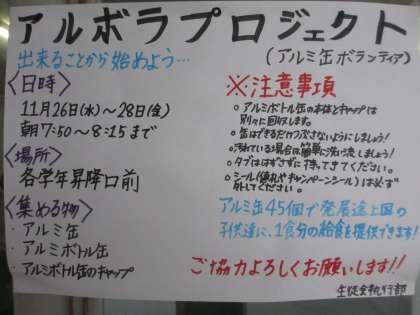 アルボラプロジェクト
出来ることから始めよう…
(アルミ缶ボランティア)
〈日時〉
11月26日(水)～28日(金)
朝7:50～8:15まで
〈場所〉
各学年昇降口前
〈集める物〉
・アルミ缶
・アルミボトル缶
・アルミボトル缶のキャップ
※注意事項
○アルミボトル缶の本体とキャップは
別々に回収します。
○缶はできるだけつぶさないようにしましょう!
○汚れている場合は簡単に洗い流しましょう!
○タブははずさずに持ってきてください。
○シール(値札やキャンペーンシール)は必ず
外してください。
アルミ缶45個で発展途上国の
子供達に、1食分の給食を提供できます!
ご協力よろしくお願いします!!
生徒会執行部